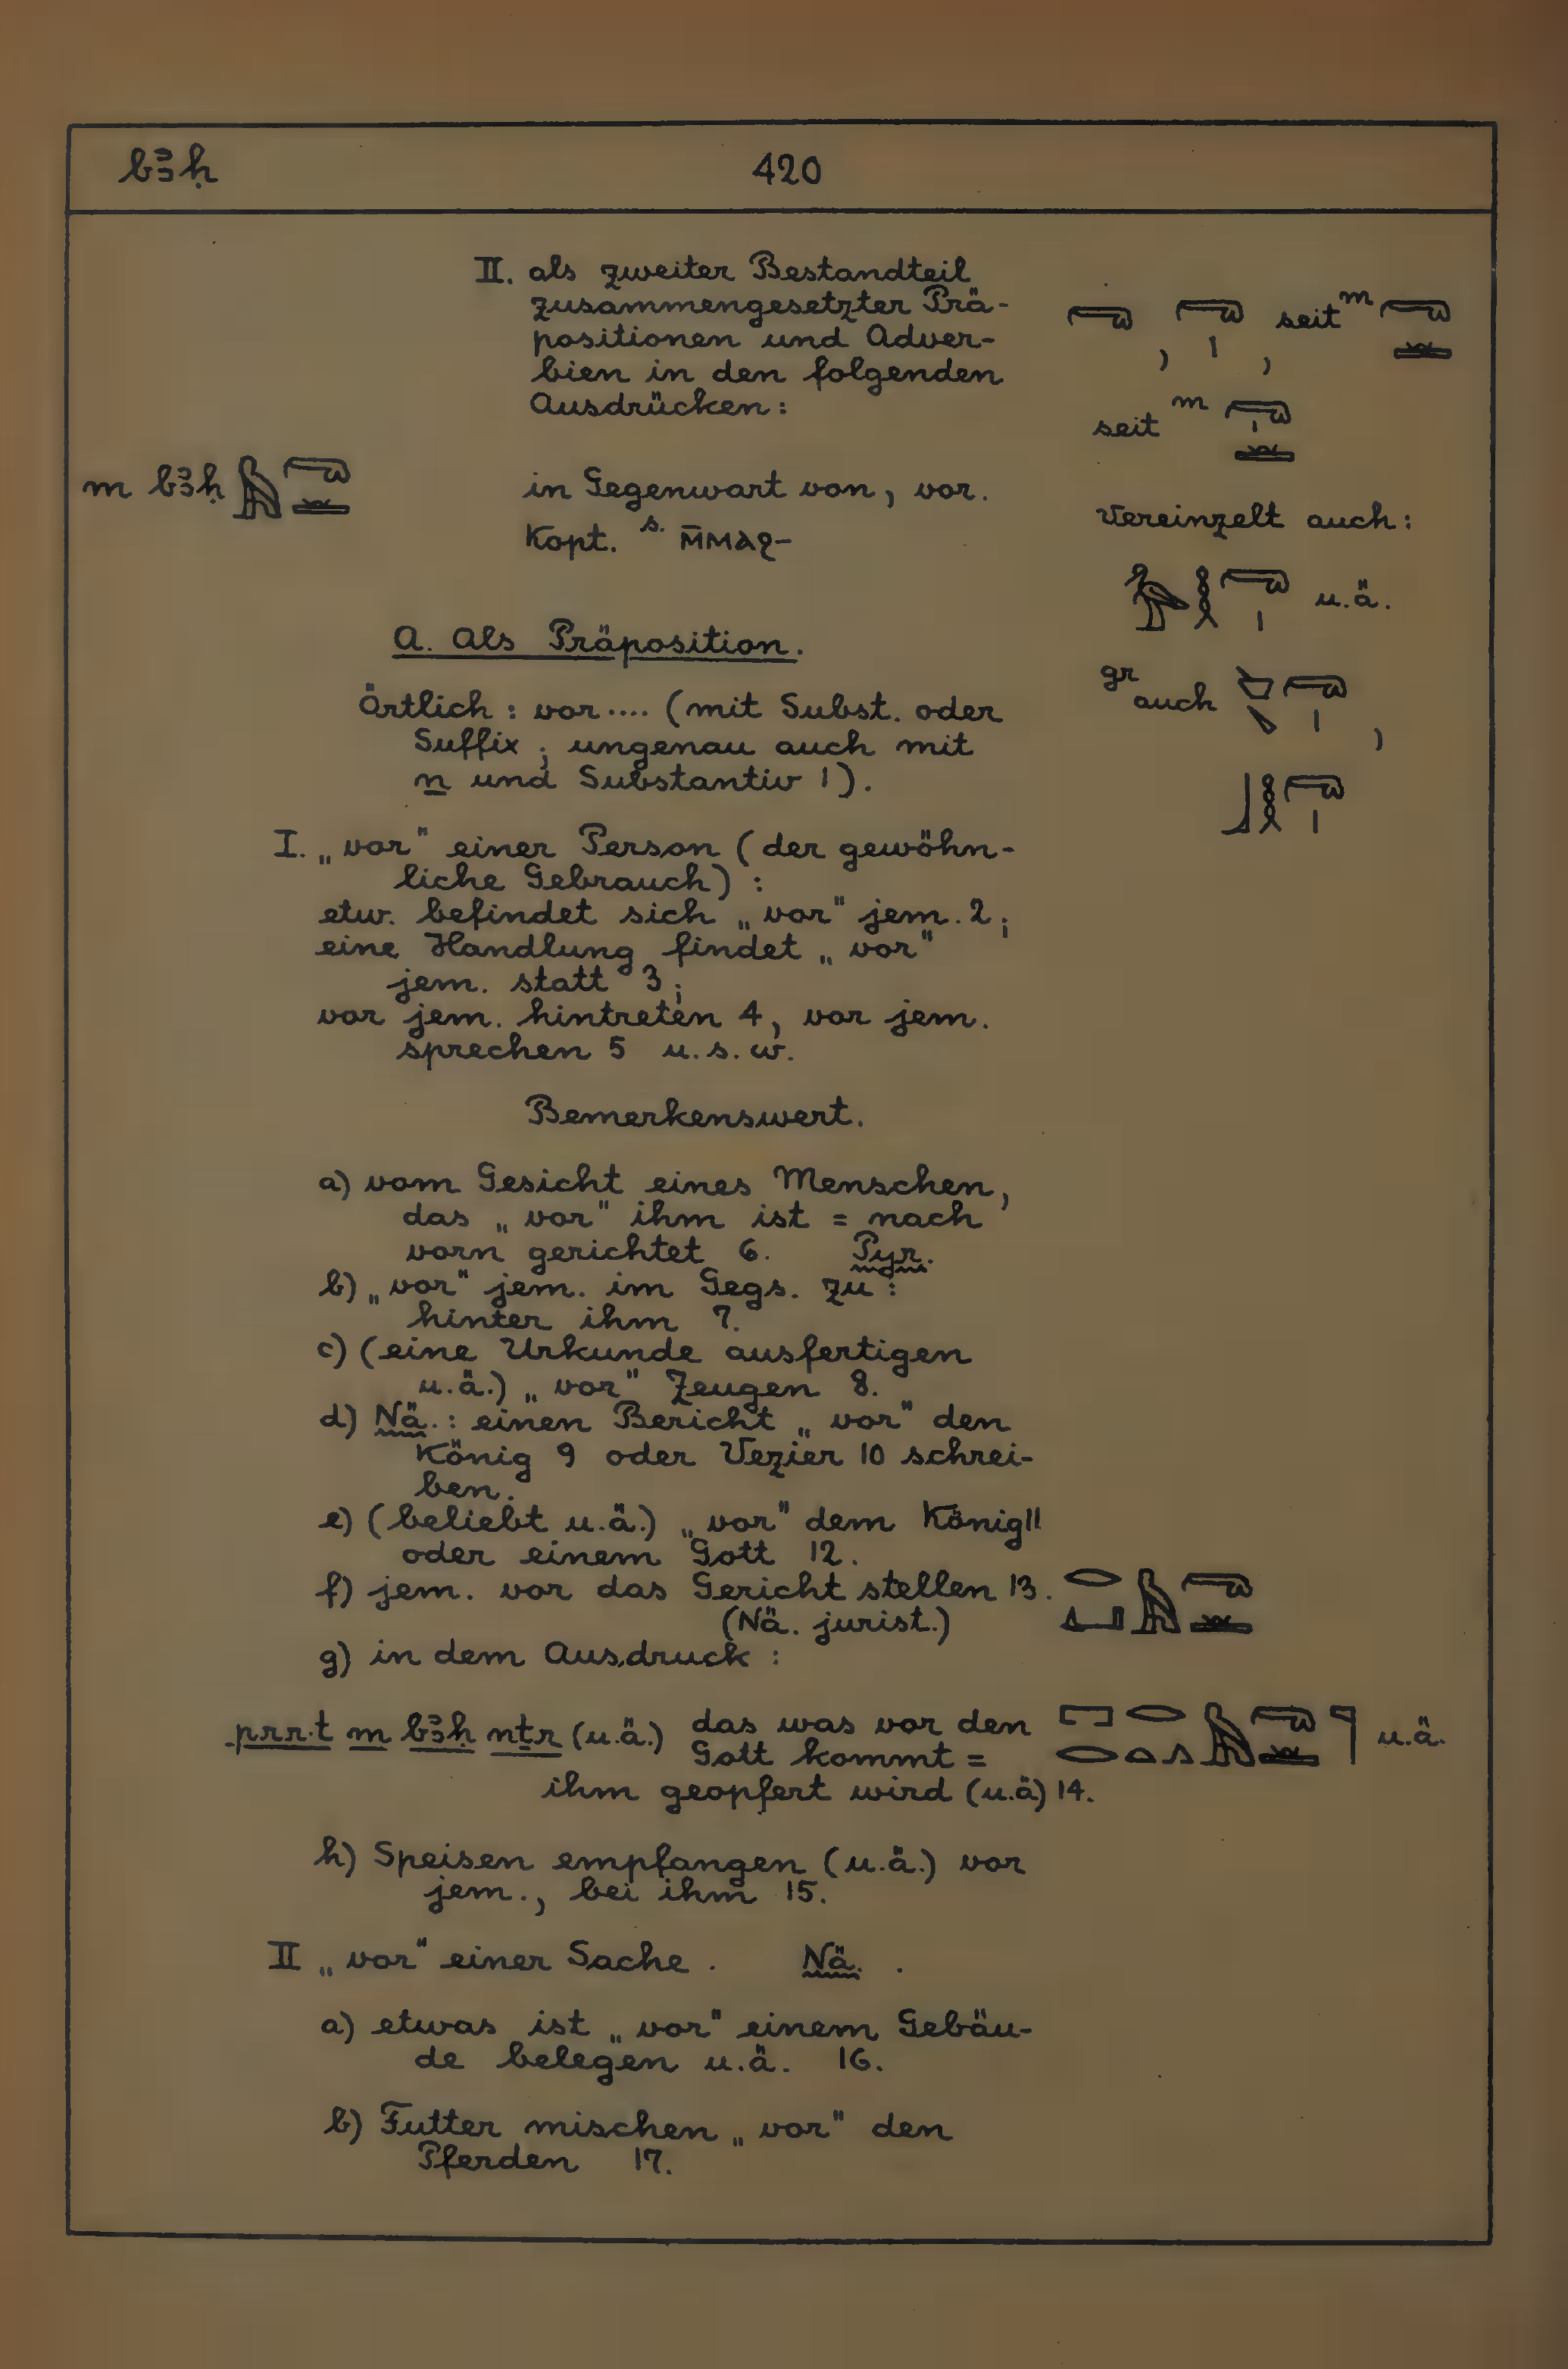 bꜣḥ 420
II. als zweiter Bestandteil
zusammengesetzter Prä-
positionen und Adver-
bien in den folgenden
Ausdrücken:
seit m
seit m
m bꜣḥ
in Gegenwart von, vor.
Kopt. s. ⲙ̄ⲙⲁϩ-
Vereinzelt auch:
u.ä.
gr auch
A. Als Präposition.
Örtlich: vor.... (mit Subst. oder
Suffix; ungenau auch mit
n und Substantiv 1).
I. „vor" einer Person (der gewöhn-
liche Gebrauch):
etw. befindet sich „vor" jem. 2;
eine Handlung findet „vor"
jem. statt 3;
vor jem. hintreten 4, vor jem.
sprechen 5 u.s.w.
Bemerkenswert.
a) vom Gesicht eines Menschen,
das „vor" ihm ist = nach
vorn gerichtet 6. Pyr.
b) „vor" jem. im Gegs. zu:
hinter ihm 7.
c) (eine Urkunde ausfertigen
u.ä.) „vor" Zeugen 8.
d) Nä.: einen Bericht „vor" den
König 9 oder Vezier 10 schrei-
ben.
e) (beliebt u.ä.) „vor" dem König 11
oder einem Gott 12.
f) jem. vor das Gericht stellen 13.
(Nä. jurist.)
g) in dem Ausdruck:
prr.t m bꜣḥ nṯr (u.ä.) das was vor den
Gott kommt = u.ä.
ihm geopfert wird (u.ä) 14.
h) Speisen empfangen (u.ä.) vor
jem., bei ihm 15.
II „vor" einer Sache. Nä. .
a) etwas ist „vor" einem Gebäu-
de belegen u.ä. 16.
b) Futter mischen „vor" den
Pferden 17.